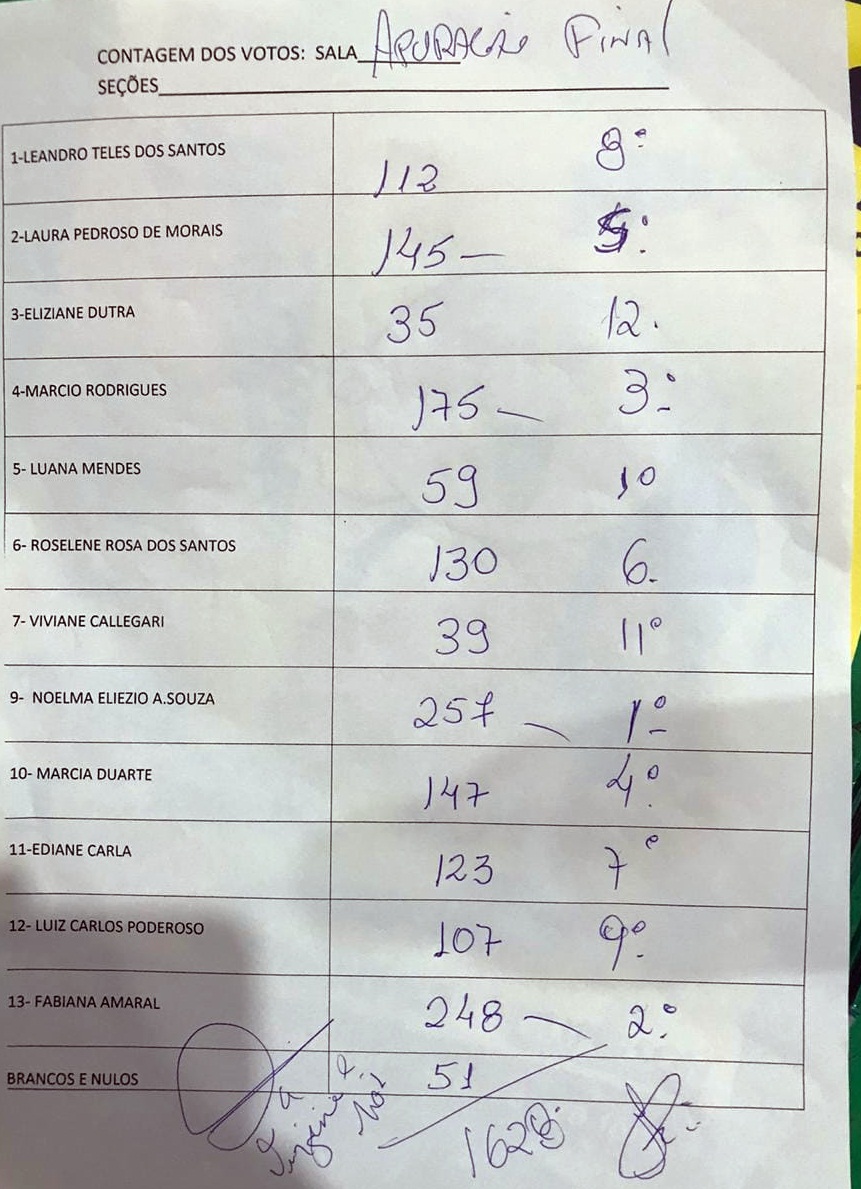 CONTAGEM DOS VOTOS: SALA APURAÇÃO FINAL
SEÇÕES
1-LEANDRO TELES DOS SANTOS 112 8º
2-LAURA PEDROSO DE MORAIS 145 — 5º
3-ELIZIANE DUTRA 35 12.
4-MARCIO RODRIGUES 175 — 3º
5- LUANA MENDES 59 10
6- ROSELENE ROSA DOS SANTOS 130 6.
7- VIVIANE CALLEGARI 39 11º
9- NOELMA ELIEZIO A.SOUZA 257 — 1º
10- MARCIA DUARTE 147 4º
11-EDIANE CARLA 123 7º
12- LUIZ CARLOS PODEROSO 107 9º
13- FABIANA AMARAL 248 — 2º
BRANCOS E NULOS 51
1628